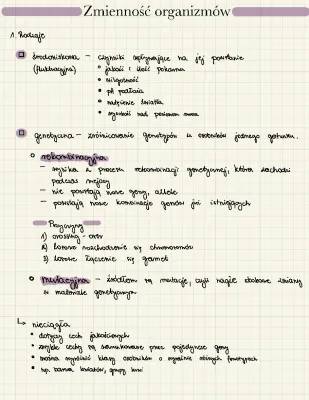 Zmienność organizmów
1. Rodzaje
środowiskowa – czynniki wpływające na jej powstanie
(fluktuacyjna)
• jakość i ilość pokarmu
• wilgotność
• pH podłoża
• natężenie światła
• wysokość nad poziomem morza
genetyczna – zróżnicowanie genotypów u osobników jednego gatunku.
rekombinacyjna
– wynika z procesu rekombinacji genetycznej, która zachodzi
podczas mejozy
– nie powstają nowe geny, allele
– powstają nowe kombinacje genów już istniejących
Przyczyny
1) crossing-over
2) losowe rozchodzenie się chromosomów
3) losowe łączenie się gamet
mutacyjna – źródłem są mutacje, czyli nagłe skokowe zmiany
w materiale genetycznym
↳ nieciągła
• dotyczy cech jakościowych
• zwykle cechy są warunkowane przez pojedyncze geny
• można wyróżnić klasy osobników o wyraźnie różnych fenotypach
• np. barwa kwiatów, grupy krwi